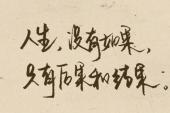 人生,没有如果,
只有后果和结果: